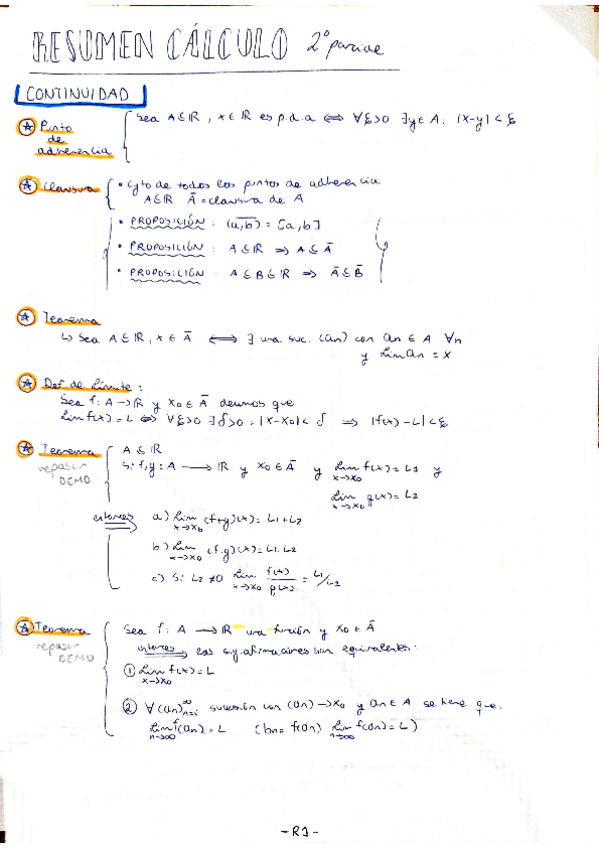 RESUMEN CÁLCULO 2º parcial
CONTINUIDAD
Punto de adherencia
Sea A⊆ℝ, x∈ℝ es p.d.a ⟺ ∀ξ>0 ∃y∈A: |x-y|<ξ
Clausura
• Cjto de todos los puntos de adherencia
A⊆ℝ Ā = clausura de A
• PROPOSICIÓN: (a,b)‾ = [a,b]
• PROPOSICIÓN: A⊆ℝ ⟹ A⊆Ā
• PROPOSICIÓN: A⊆B⊆ℝ ⟹ Ā⊆B̄
Teorema
↳ Sea A⊆ℝ, x∈Ā ⟺ ∃ una suc. (an) con an∈A ∀n
y Lim an = x
Def de Límite:
Sea f: A→ℝ y x0∈Ā decimos que
Lim f(x) = L ⟺ ∀ξ>0 ∃δ>0: |x-x0|<δ ⟹ |f(x)-L|<ξ
Teorema
repasar DEMO
A⊆ℝ
Si f,g: A ⟶ ℝ y x0∈Ā y Lim x→x0 f(x) = L1 y
Lim x→x0 g(x) = L2
entonces a) Lim x→x0 (f+g)(x) = L1+L2
b) Lim x→x0 (f.g)(x) = L1.L2
c) Si L2≠0 Lim x→x0 f(x)/g(x) = L1/L2
Teorema
repasar DEMO
Sea f: A ⟶ ℝ una función y x0∈Ā
entonces las sig. afirmaciones son equivalentes:
① Lim x→x0 f(x) = L
② ∀(an)∞n=1 sucesión con (an)→x0 y an∈A se tiene que:
Lim n→∞ f(an) = L (bn = f(an) Lim n→∞ f(an) = L)
-R1-